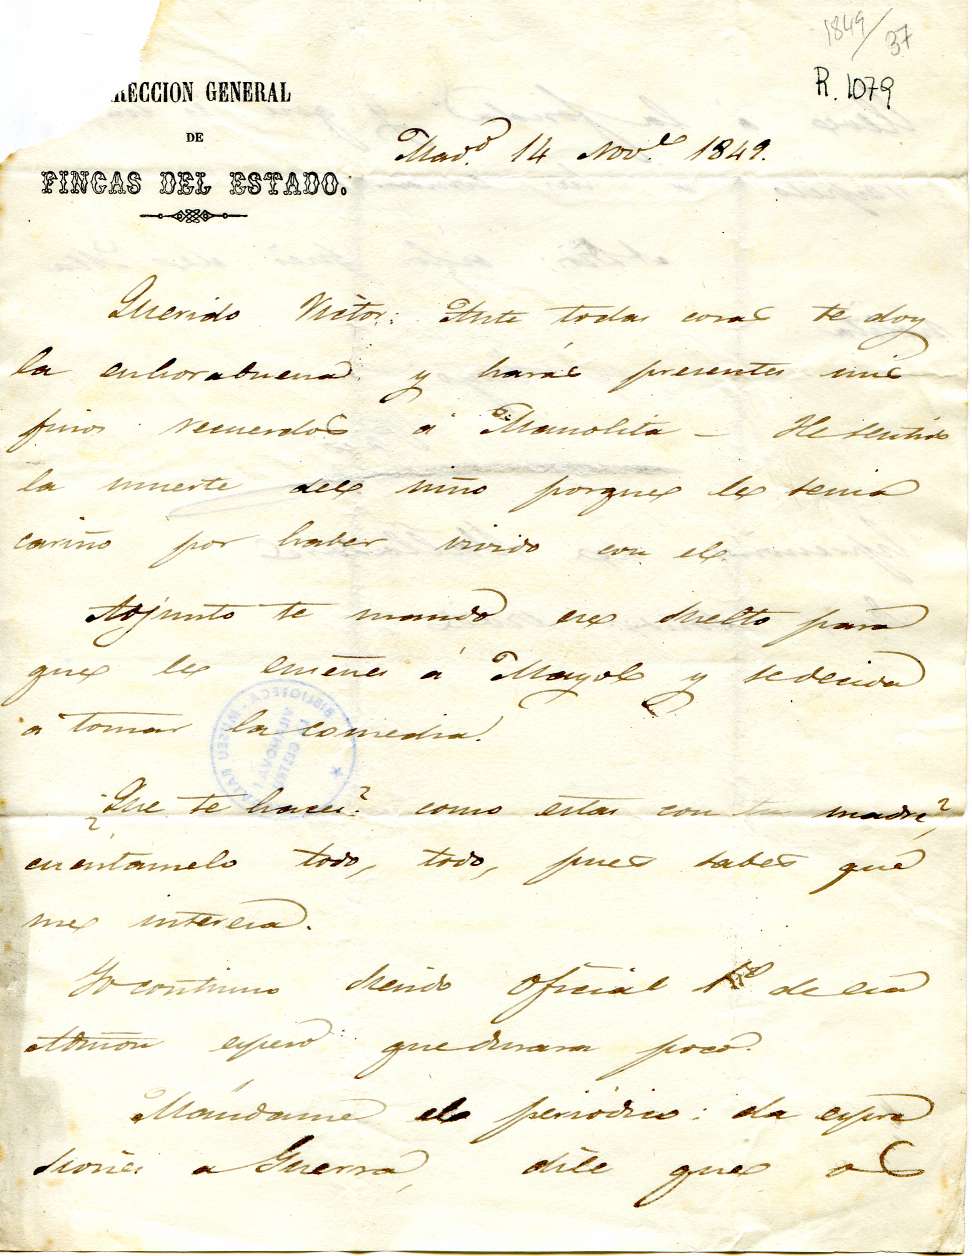 1849/37
R. 1079
RECCION GENERAL
DE
FINCAS DEL ESTADO.
Mad.d 14 Nov.e 1849.
Querido Victor: Ante todas cosas te doy
la enhorabuena y harás presentes mis
finos recuerdos á Manolita – He sentido
la muerte del niño porque le tenia
cariño por haber vivido con el
Adjunto te mando ese suelto para
que le enseñes á Mayol y se decida
a tomar la comedia.
¿Que te haces? ¿como estas con tu madre?
cuentamelo todo, todo, pues sabes que
me interesa.
Yo continuo siendo oficial 1º de esa
Admon espero que durara poco.
Mándame el periódico: da espre
siones a Guerra, dile que
BIBLIOTECA MUSEU